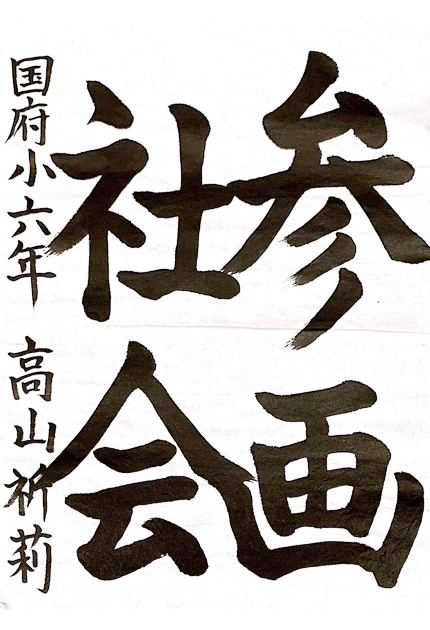 参画
社会
国府小六年 高山祈莉